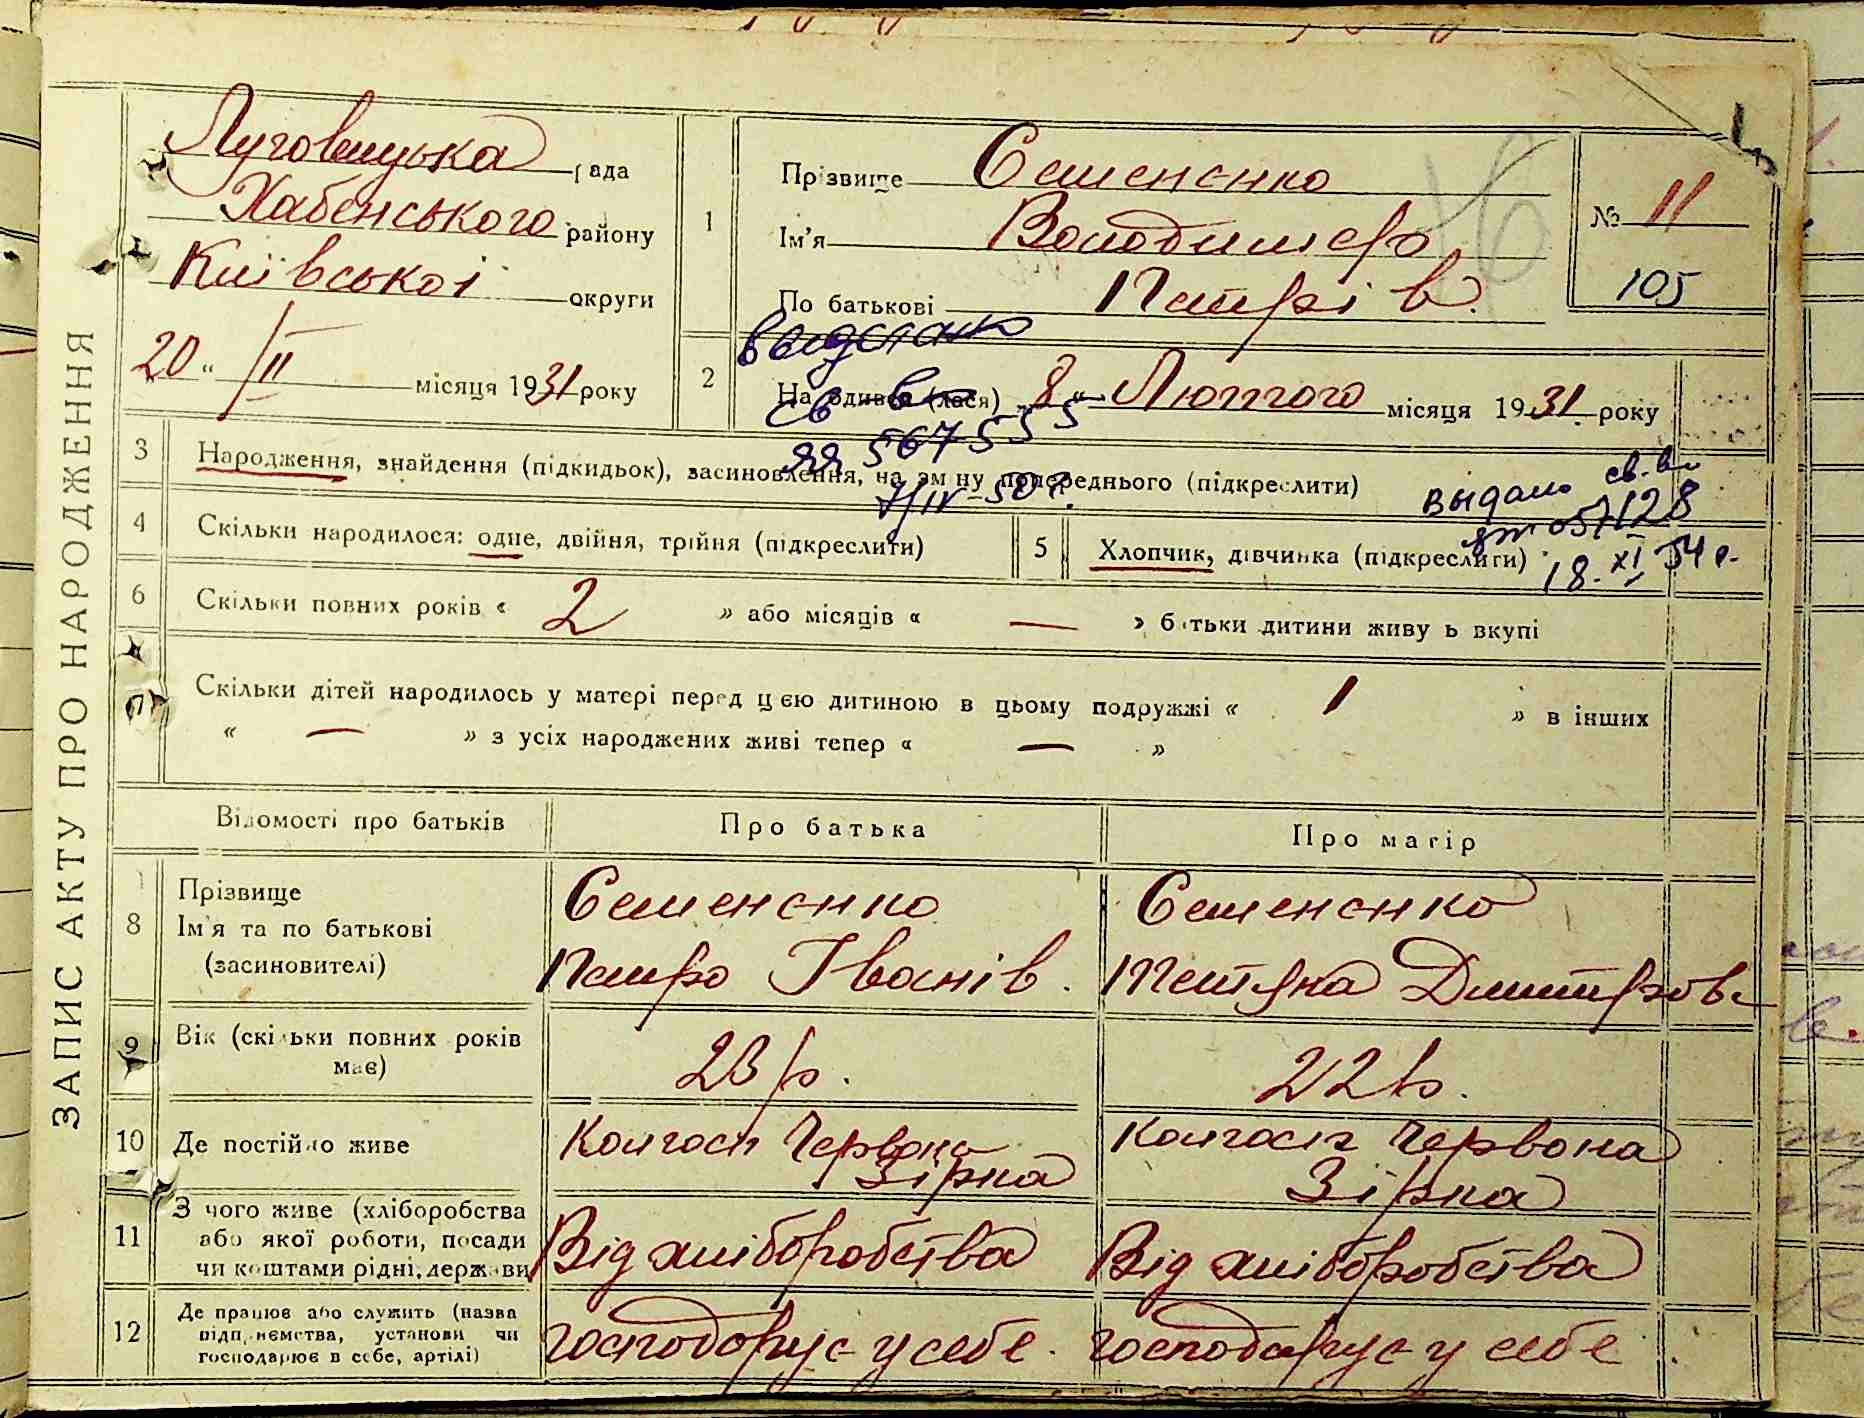 ЗАПИС АКТУ ПРО НАРОДЖЕННЯ
Луговицька рада
Хабенського району
Київської округи
20 " /II місяця 1931 року
1
Прізвище Семененко
Ім'я Володимер
По батькові Петрів.
№ 11
105
46
2
Народився (лася) 8 " Лютого місяця 1931. року
выдано
св-во
ЯЯ 567555
7/IV-50 г.
3 Народження, знайдення (підкидьок), засиновлення, на зміну попереднього (підкреслити)
выдано св.-во
057128
18. XI 54 г.
4 Скільки народилося: одне, двійня, трійня (підкреслити)
5 Хлопчик, дівчинка (підкреслити)
6 Скільки повних років « 2 » або місяців « — » батьки дитини живуть вкупі
7 Скільки дітей народилось у матері перед цією дитиною в цьому подружжі « 1 » в інших
« — » з усіх народжених живі тепер « — »
Відомості про батьків Про батька Про матір
8 Прізвище Ім'я та по батькові (засиновителі)
Семененко Петро Іванів.
Семененко Тетяна Дмитров.
9 Вік (скільки повних років має) 23 р. 22 р.
10 Де постійно живе Колгосп Червона Зірка Колгосп Червона Зірка
11 З чого живе (хліборобства або якої роботи, посади чи коштами рідні, держави)
Від хліборобства Від хліборобства
12 Де працює або служить (назва підприємства, установи чи господарює в себе, артілі)
господорує у себе. господарує у себе.